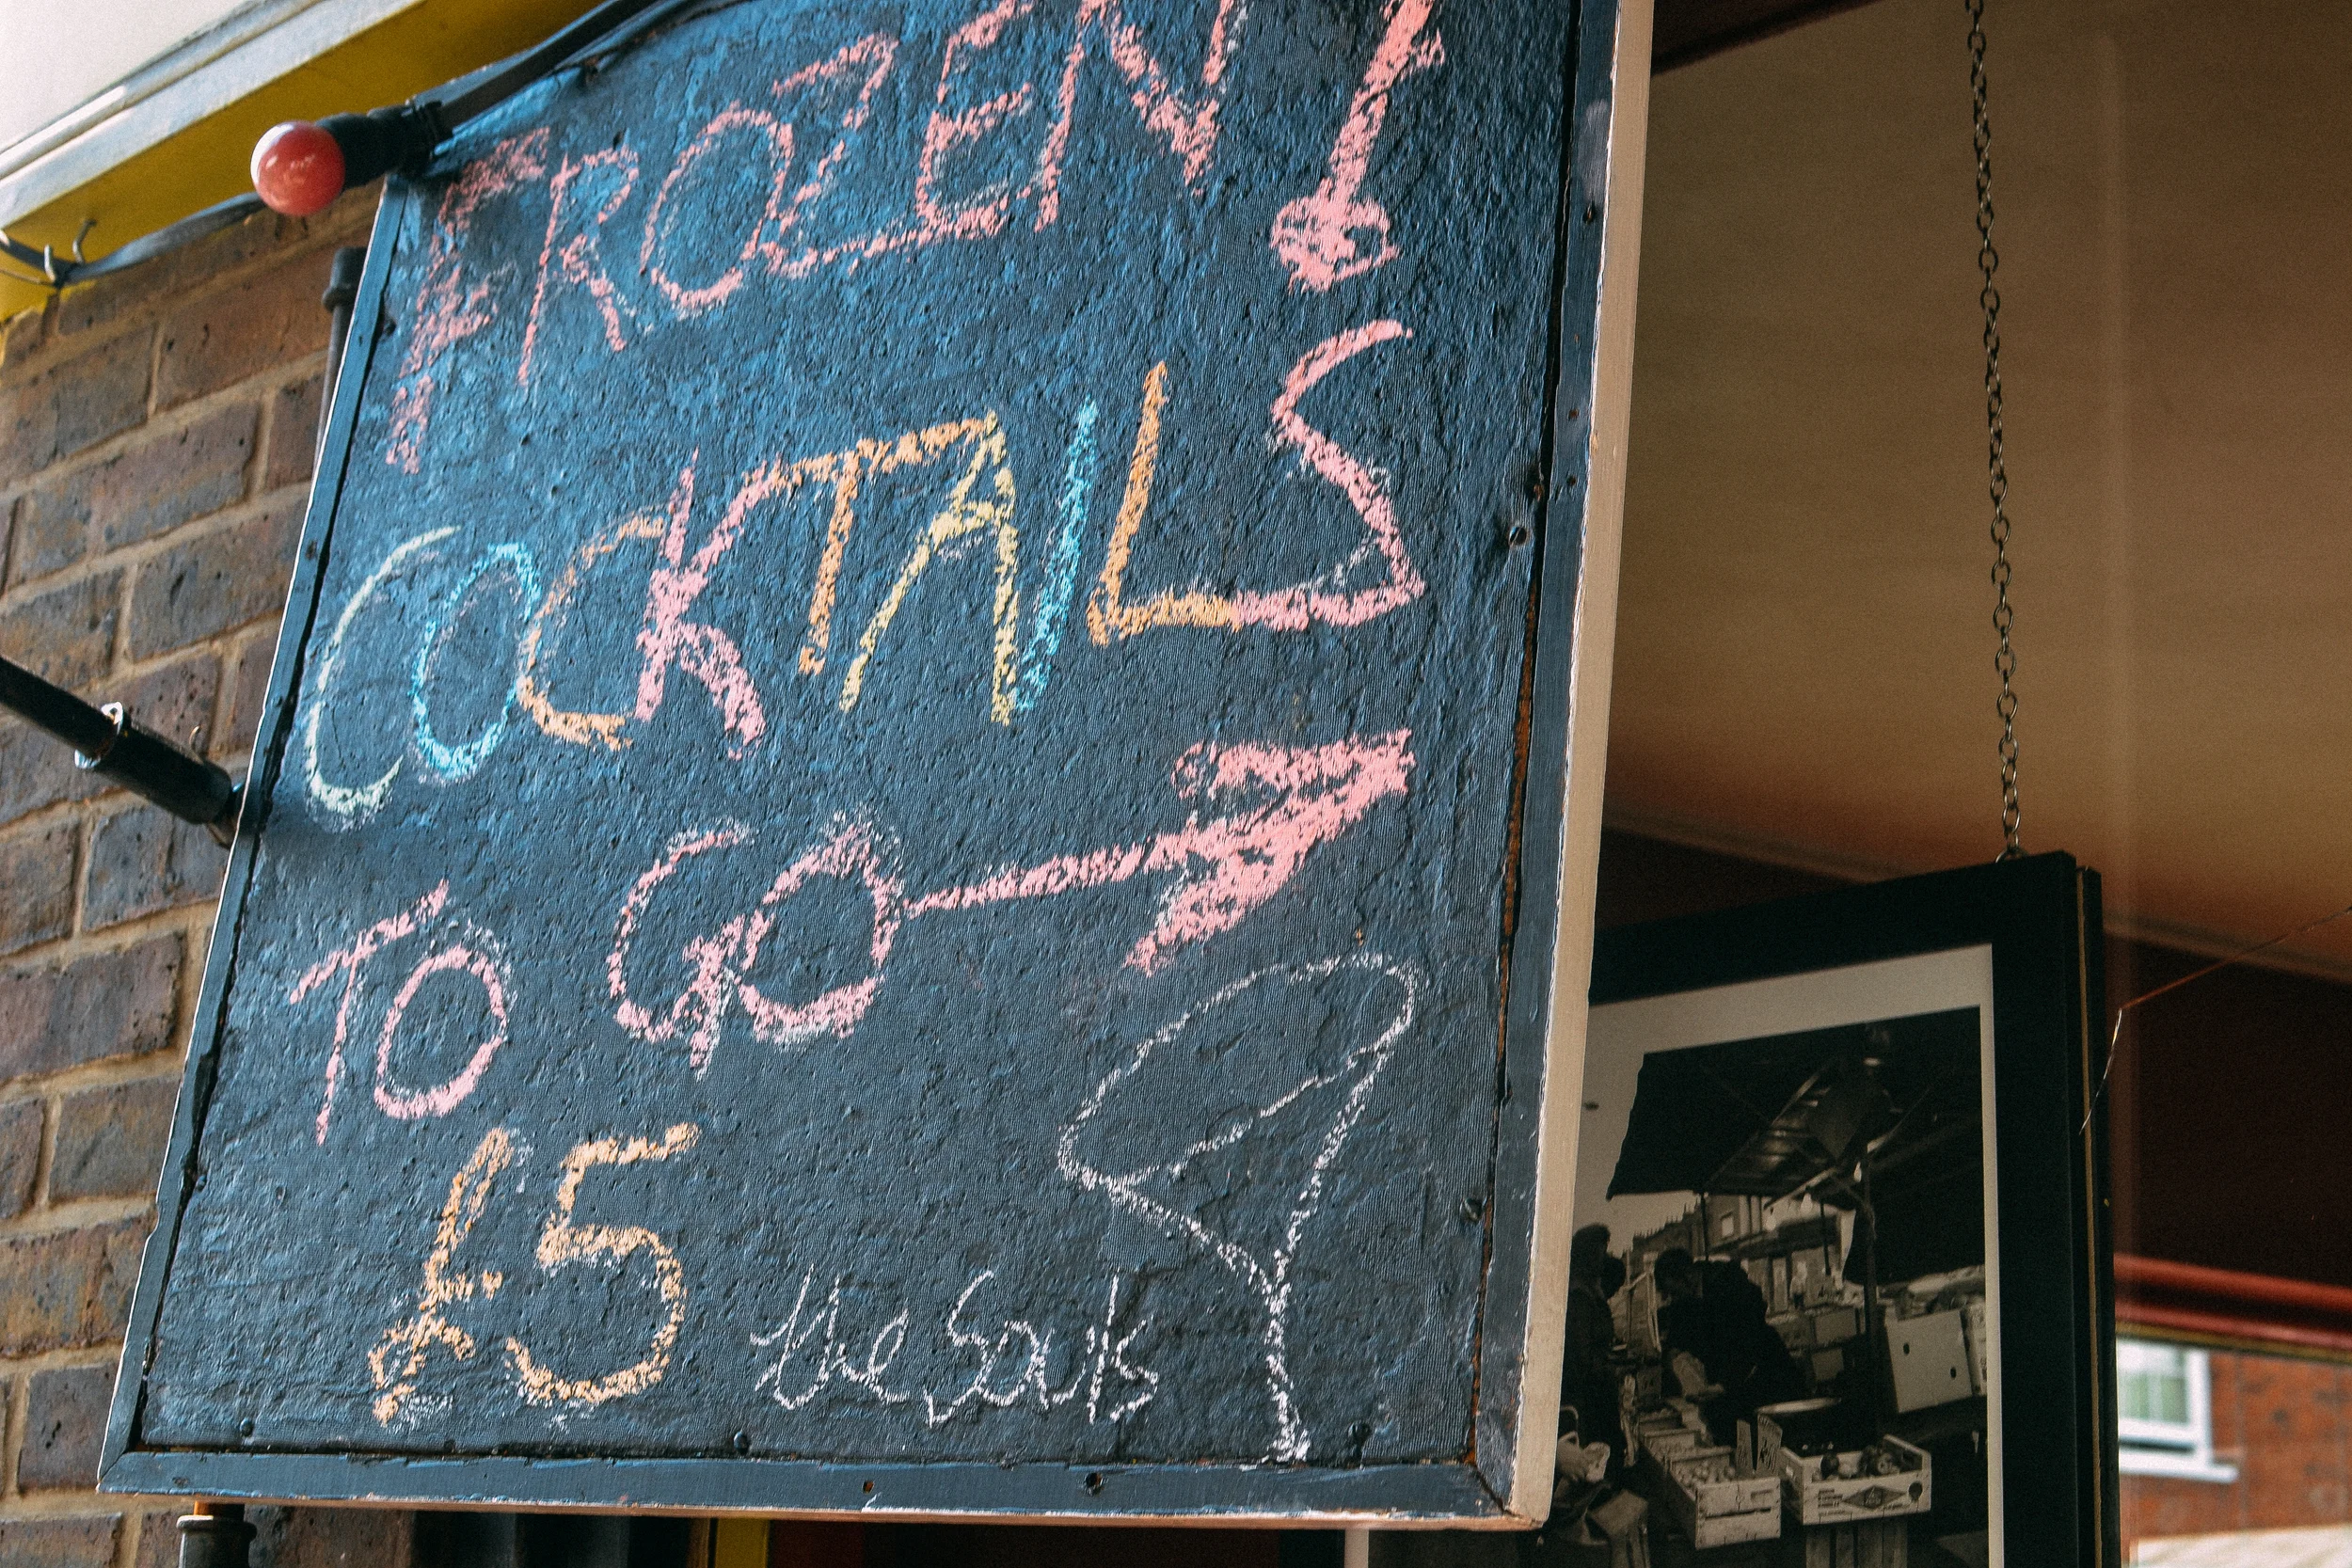 FROZEN!
COCKTAILS
TO GO
£5 the souls